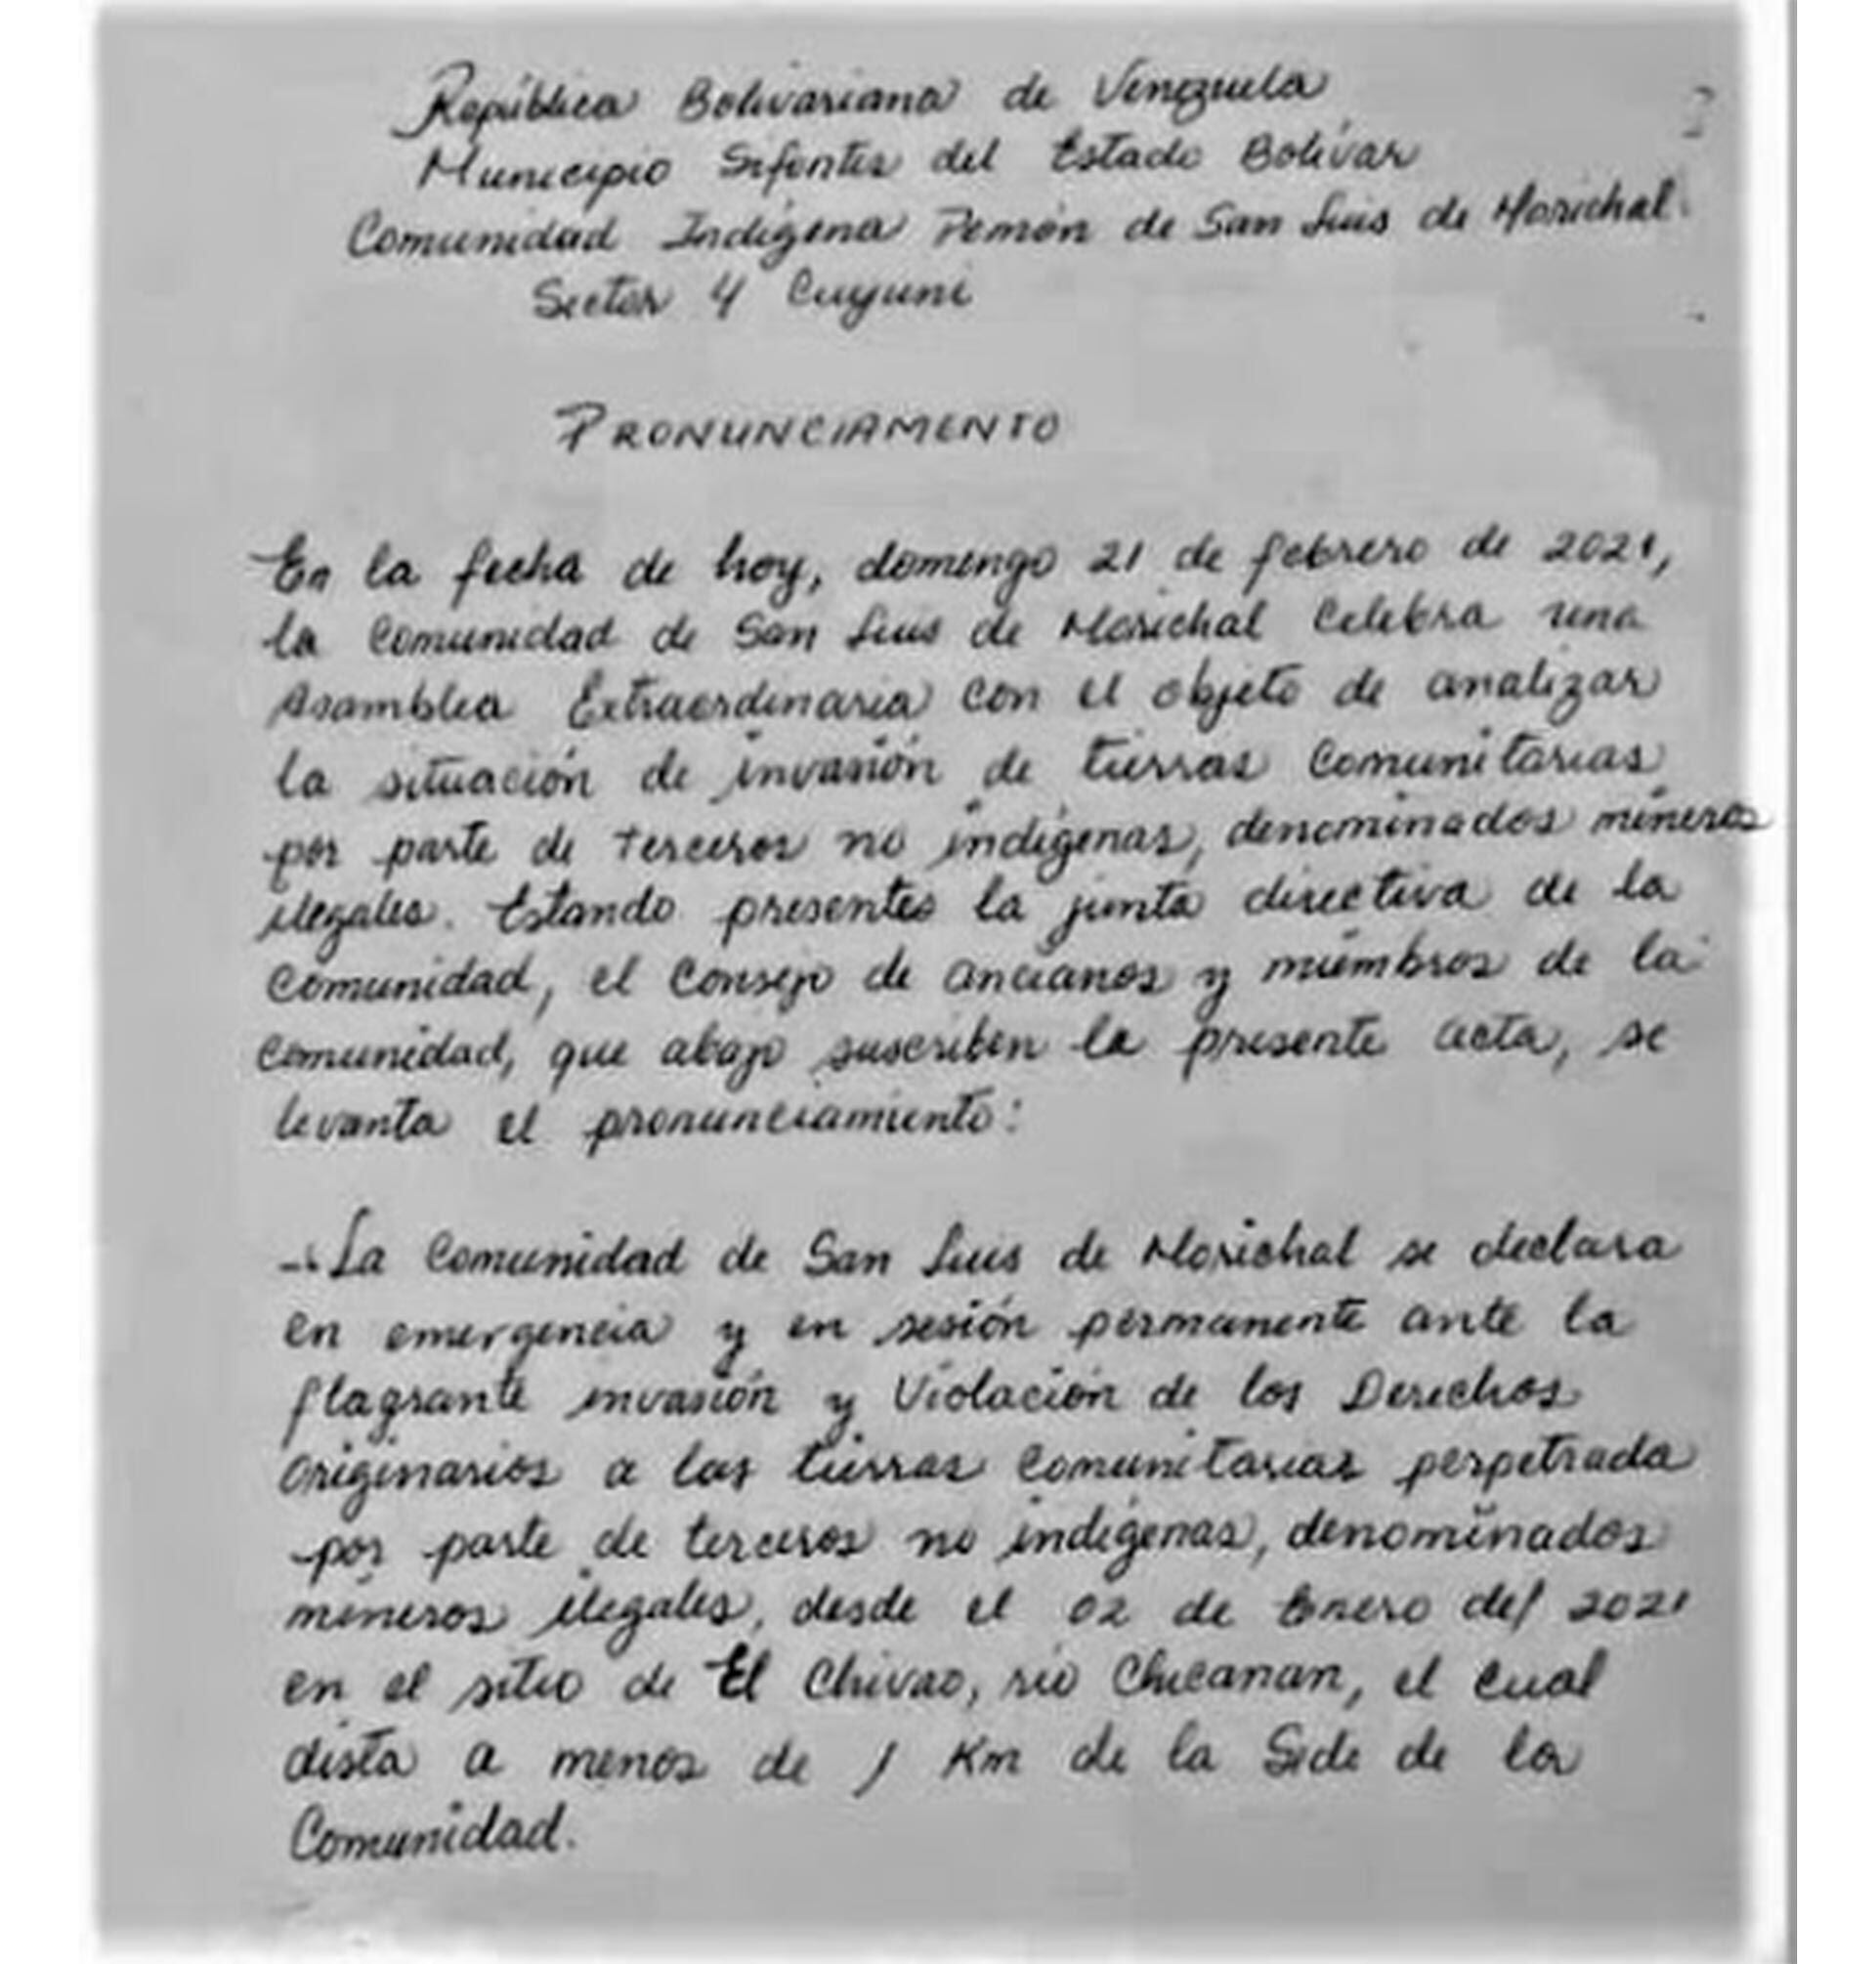 República Bolivariana de Venezuela
Municipio Sifontes del Estado Bolívar
Comunidad Indígena Pemón de San Luis de Morichal
Sector 4 Cuyuni
PRONUNCIAMENTO
En la fecha de hoy, domingo 21 de febrero de 2021,
la Comunidad de San Luis de Morichal Celebra una
Asamblea Extraordinaria con el objeto de analizar
la situación de invasión de tierras Comunitarias
por parte de terceros no indígenas, denominados mineros
ilegales. Estando presentes la junta directiva de la
Comunidad, el Consejo de ancianos y miembros de la
Comunidad, que abajo suscriben la presente acta, se
levanta el pronunciamiento:
-. La Comunidad de San Luis de Morichal se declara
en emergencia y en sesión permanente ante la
flagrante invasión y Violación de los Derechos
Originarios a las tierras Comunitarias perpetrada
por parte de terceros no indígenas, denominados
mineros ilegales, desde el 02 de Enero del 2021
en el sitio de El Chivao, río Chicanan, el cual
dista a menos de 1 Km de la Sede de la
Comunidad.